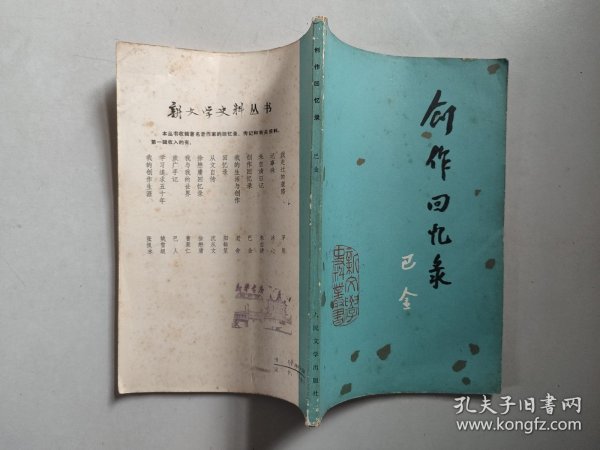 创作回忆录
巴金
新文學
史料叢書
创作回忆录
巴金
人民文学出版社
新文学史料丛书
本丛书收辑著名老作家的回忆录、传记和有关资料。
第一辑收入的有：
我走过的道路 茅盾
记事珠 冰心
朱自清日记 朱自清
创作回忆录 巴金
我的生活与创作 老舍
回忆录 阳翰笙
从文自传 沈从文
徐懋庸回忆录 徐懋庸
我与我的世界 曹聚仁
旅广手记 巴人
学习追求五十年 姚雪垠
我的创作生涯 张恨水
新华书店
孔夫子旧书网
www.kongfz.com